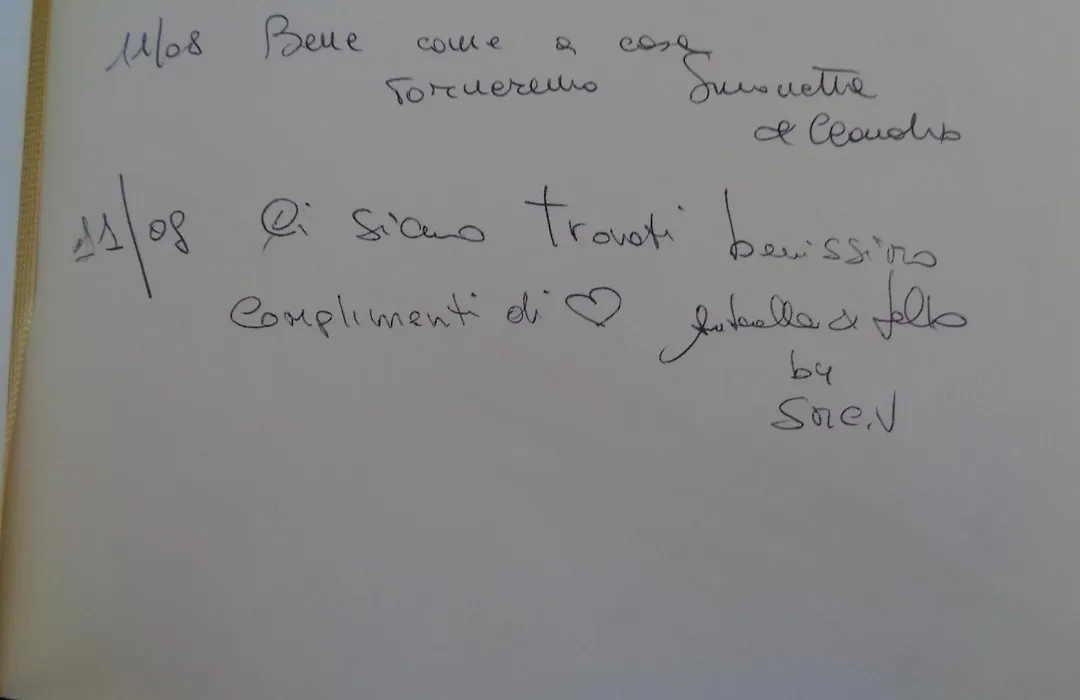 11/08 Bene come a casa
Torneremo Simonetta
&
11/08 Ci siamo Trovati benissimo
Complimenti di ♡ Antonella &
by